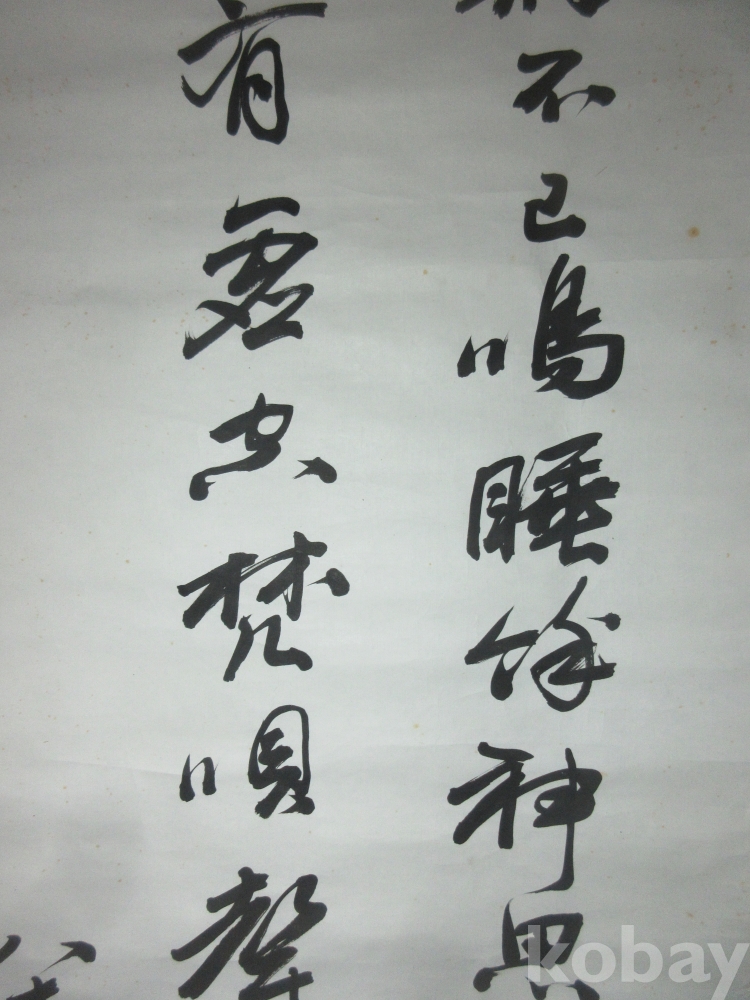 不已鳴睡餘神與
有虛空梵唄聲
kobay